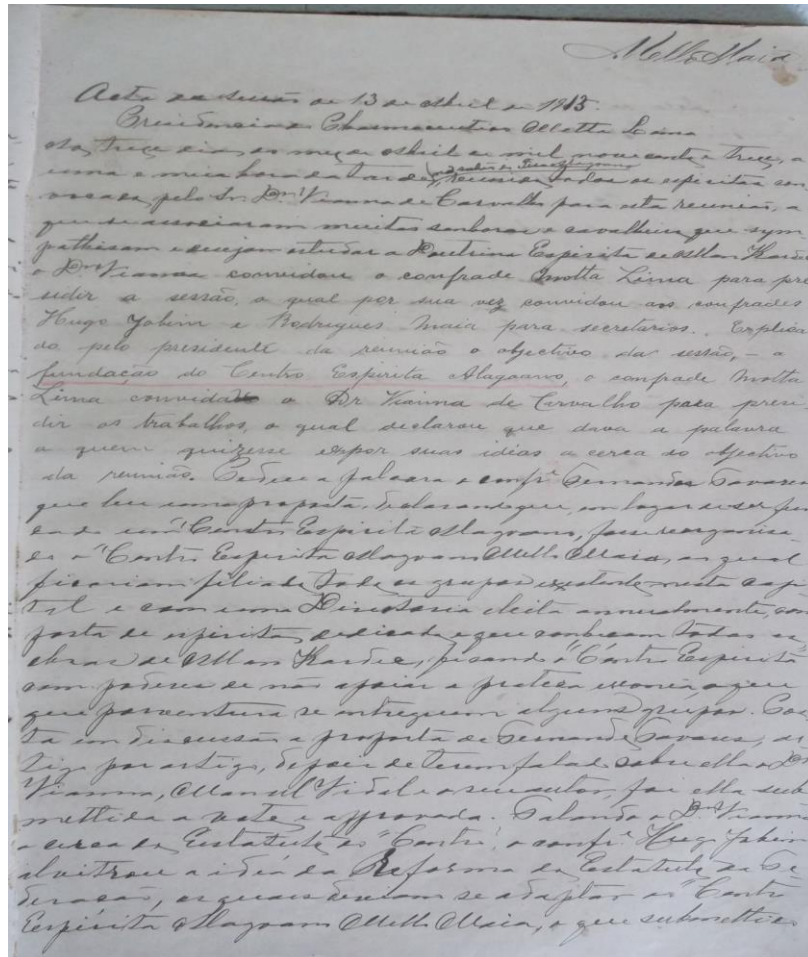 Mello Maia
Acta da sessão de 13 de Abril de 1913.
Presidencia do Pharmaceutico Motta Lima
Aos treze dias do mez de Abril de mil nove centos e treze, a
uma e meia hora da tarde, reunidos todos os espiritas con
vocados pelo Sr. Dr. Vianna de Carvalho para esta reunião, a
que se associaram muitas senhoras e cavalheiros que sym
pathisam e desejam estudar a Doutrina Espirita de Allan Kardec
o Dr. Vianna convidou o confrade Motta Lima para pre
sidir a sessão, o qual por sua vez convidou aos confrades
Hugo Jobim e Rodrigues Maia para secretarios. Explica
do pelo presidente da reunião o objectivo da sessão, – a
fundação do Centro Espirita Alagoano, o confrade Motta
Lima convida o Dr Vianna de Carvalho para presi
dir os trabalhos, o qual declarou que dava a palavra
a quem quizesse expor suas idéas a cerca do objectivo
da reunião. Pedio a palavra o confr. Fernandes Tavares
que leu uma proposta, declarando que, em logar de ser fun
dado um "Centro Espirita Alagoano, fosse reorganisa-
do o "Centro Espirita Alagoano Mello Maia, ao qual
ficariam filiados todos os grupos existentes nesta capi
tal e com uma Directoria eleita annualmente, com
posta de espiritas dedicados e que conheçam todas as
obras de Allan Kardec, ficando o "Centro Espirita
com poderes de não apoiar a pratica a que
que porventura se entreguem alguns grupos. Pos
ta em discussão a proposta de Fernandes Tavares, ar
tigo por artigo, depois de terem falado sobre ella o Dr
Vianna, Manoel Vidal e o seu autor, foi ella sub
mettida a voto e approvada. Falando o Dr. Vianna
a cerca dos Estatutos do "Centro", o confr. Hugo Jobim
alvitrou a idéa da Reforma dos Estatutos da Fe
deração, os quaes deviam se adaptar ao "Centro
Espirita Alagoano Mello Maia, o que submettido